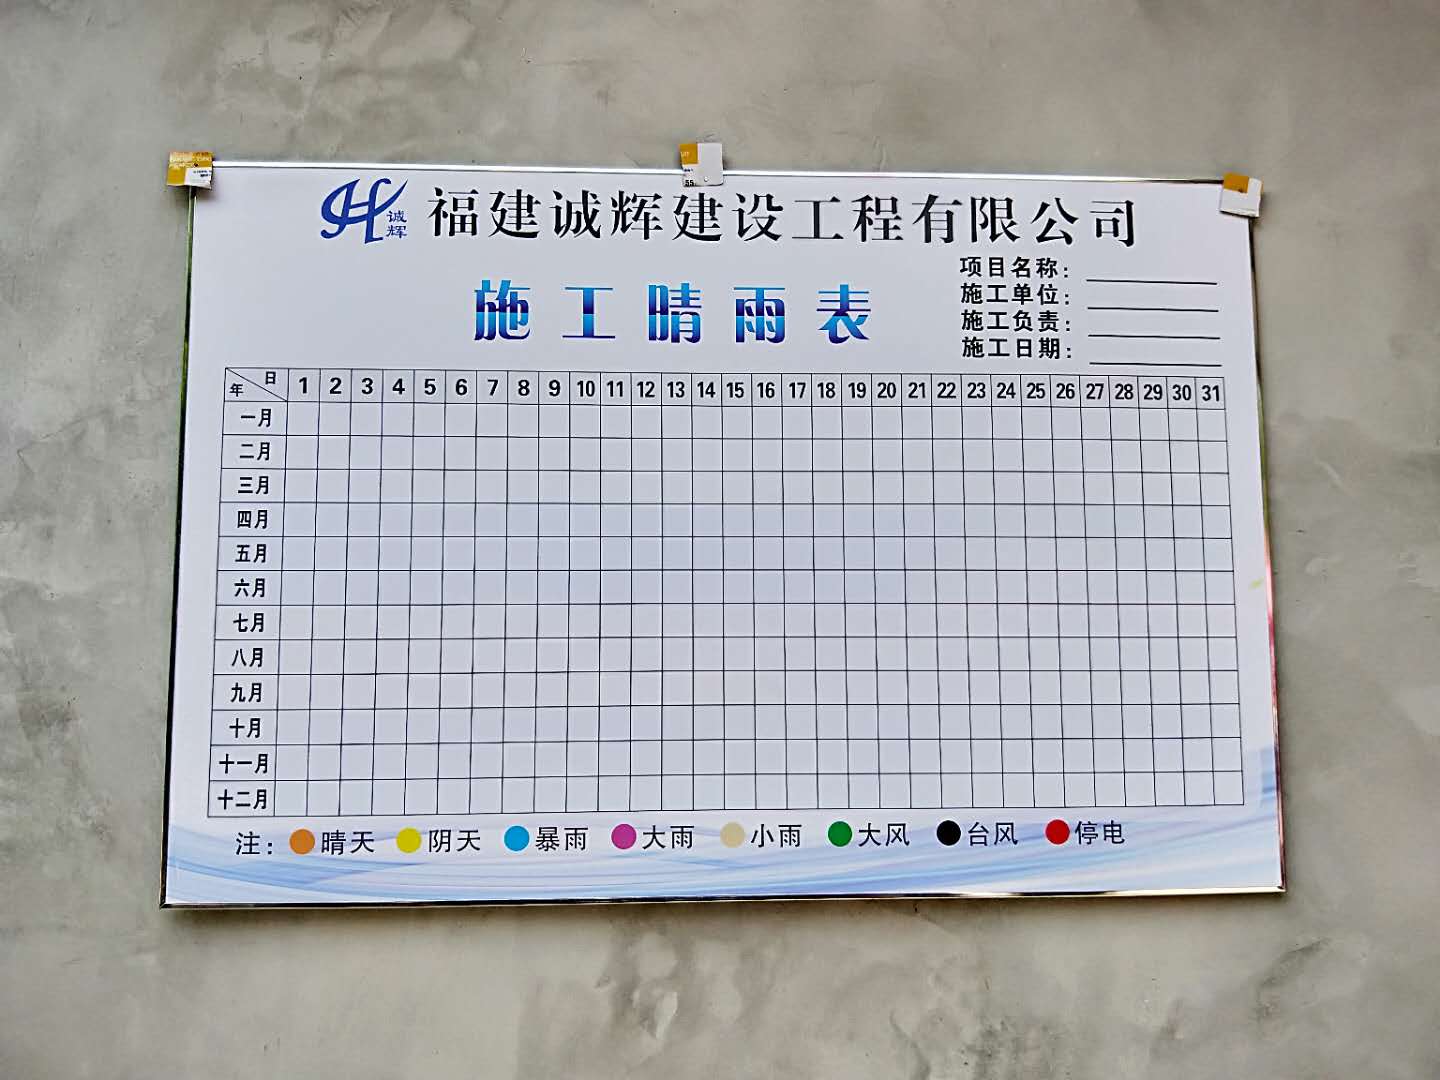 诚辉
福建诚辉建设工程有限公司
施工晴雨表
项目名称：
施工单位：
施工负责：
施工日期：
日 年 1 2 3 4 5 6 7 8 9 10 11 12 13 14 15 16 17 18 19 20 21 22 23 24 25 26 27 28 29 30 31
一月
二月
三月
四月
五月
六月
七月
八月
九月
十月
十一月
十二月
注：晴天 阴天 暴雨 大雨 小雨 大风 台风 停电